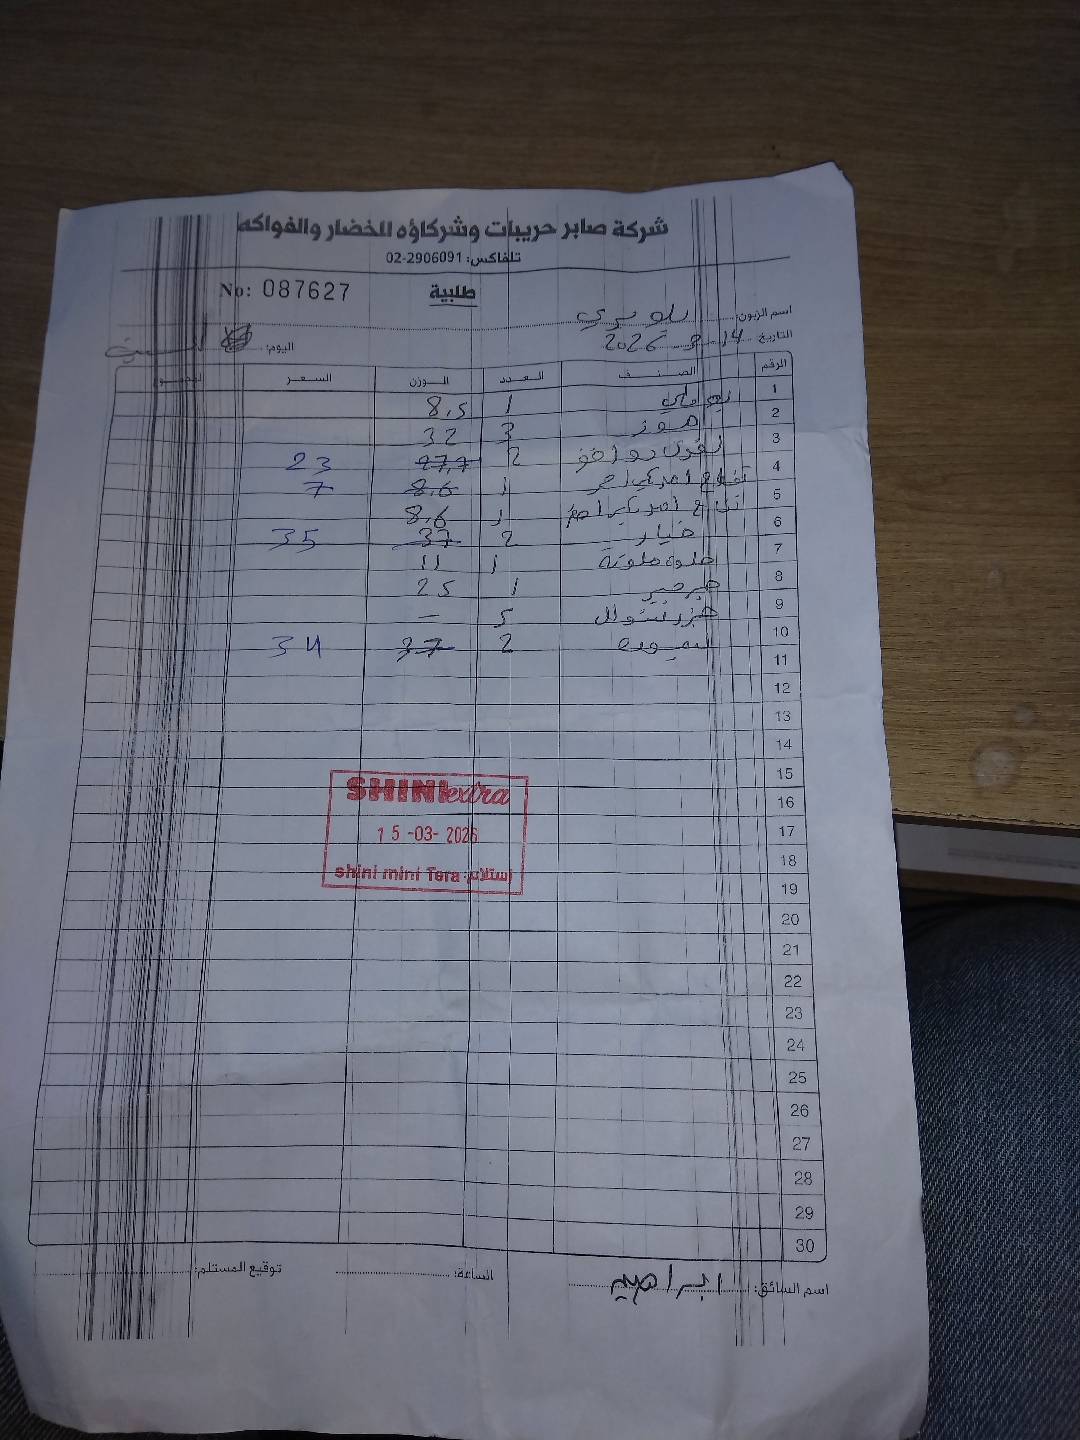 شركة صابر حريبات وشركاؤه للخضار والفواكه
تلفاكس: 02-2906091
طلبية
No: 087627
اسم الزبون:
التاريخ 14 3 2026
اليوم: السبت
الرقم الصنف العدد الوزن السعر المجموع
1 1 8,5
2 موز 3 32
3 2 27,7 23
4 تفاح احمر 1 8,6 7
5 تفاح 1 8,6
6 خيار 2 37 35
7 حلوة ملونة 1 11
8 جرجير 1 25
9 جزر 5 -
10 ليمون 2 37 34
11
12
13
14
15
16
17
18
19
20
21
22
23
24
25
26
27
28
29
30
SHINI extra
15-03-2026
shini mini Tera استلام
اسم السائق: ابراهيم
الساعة:
توقيع المستلم: